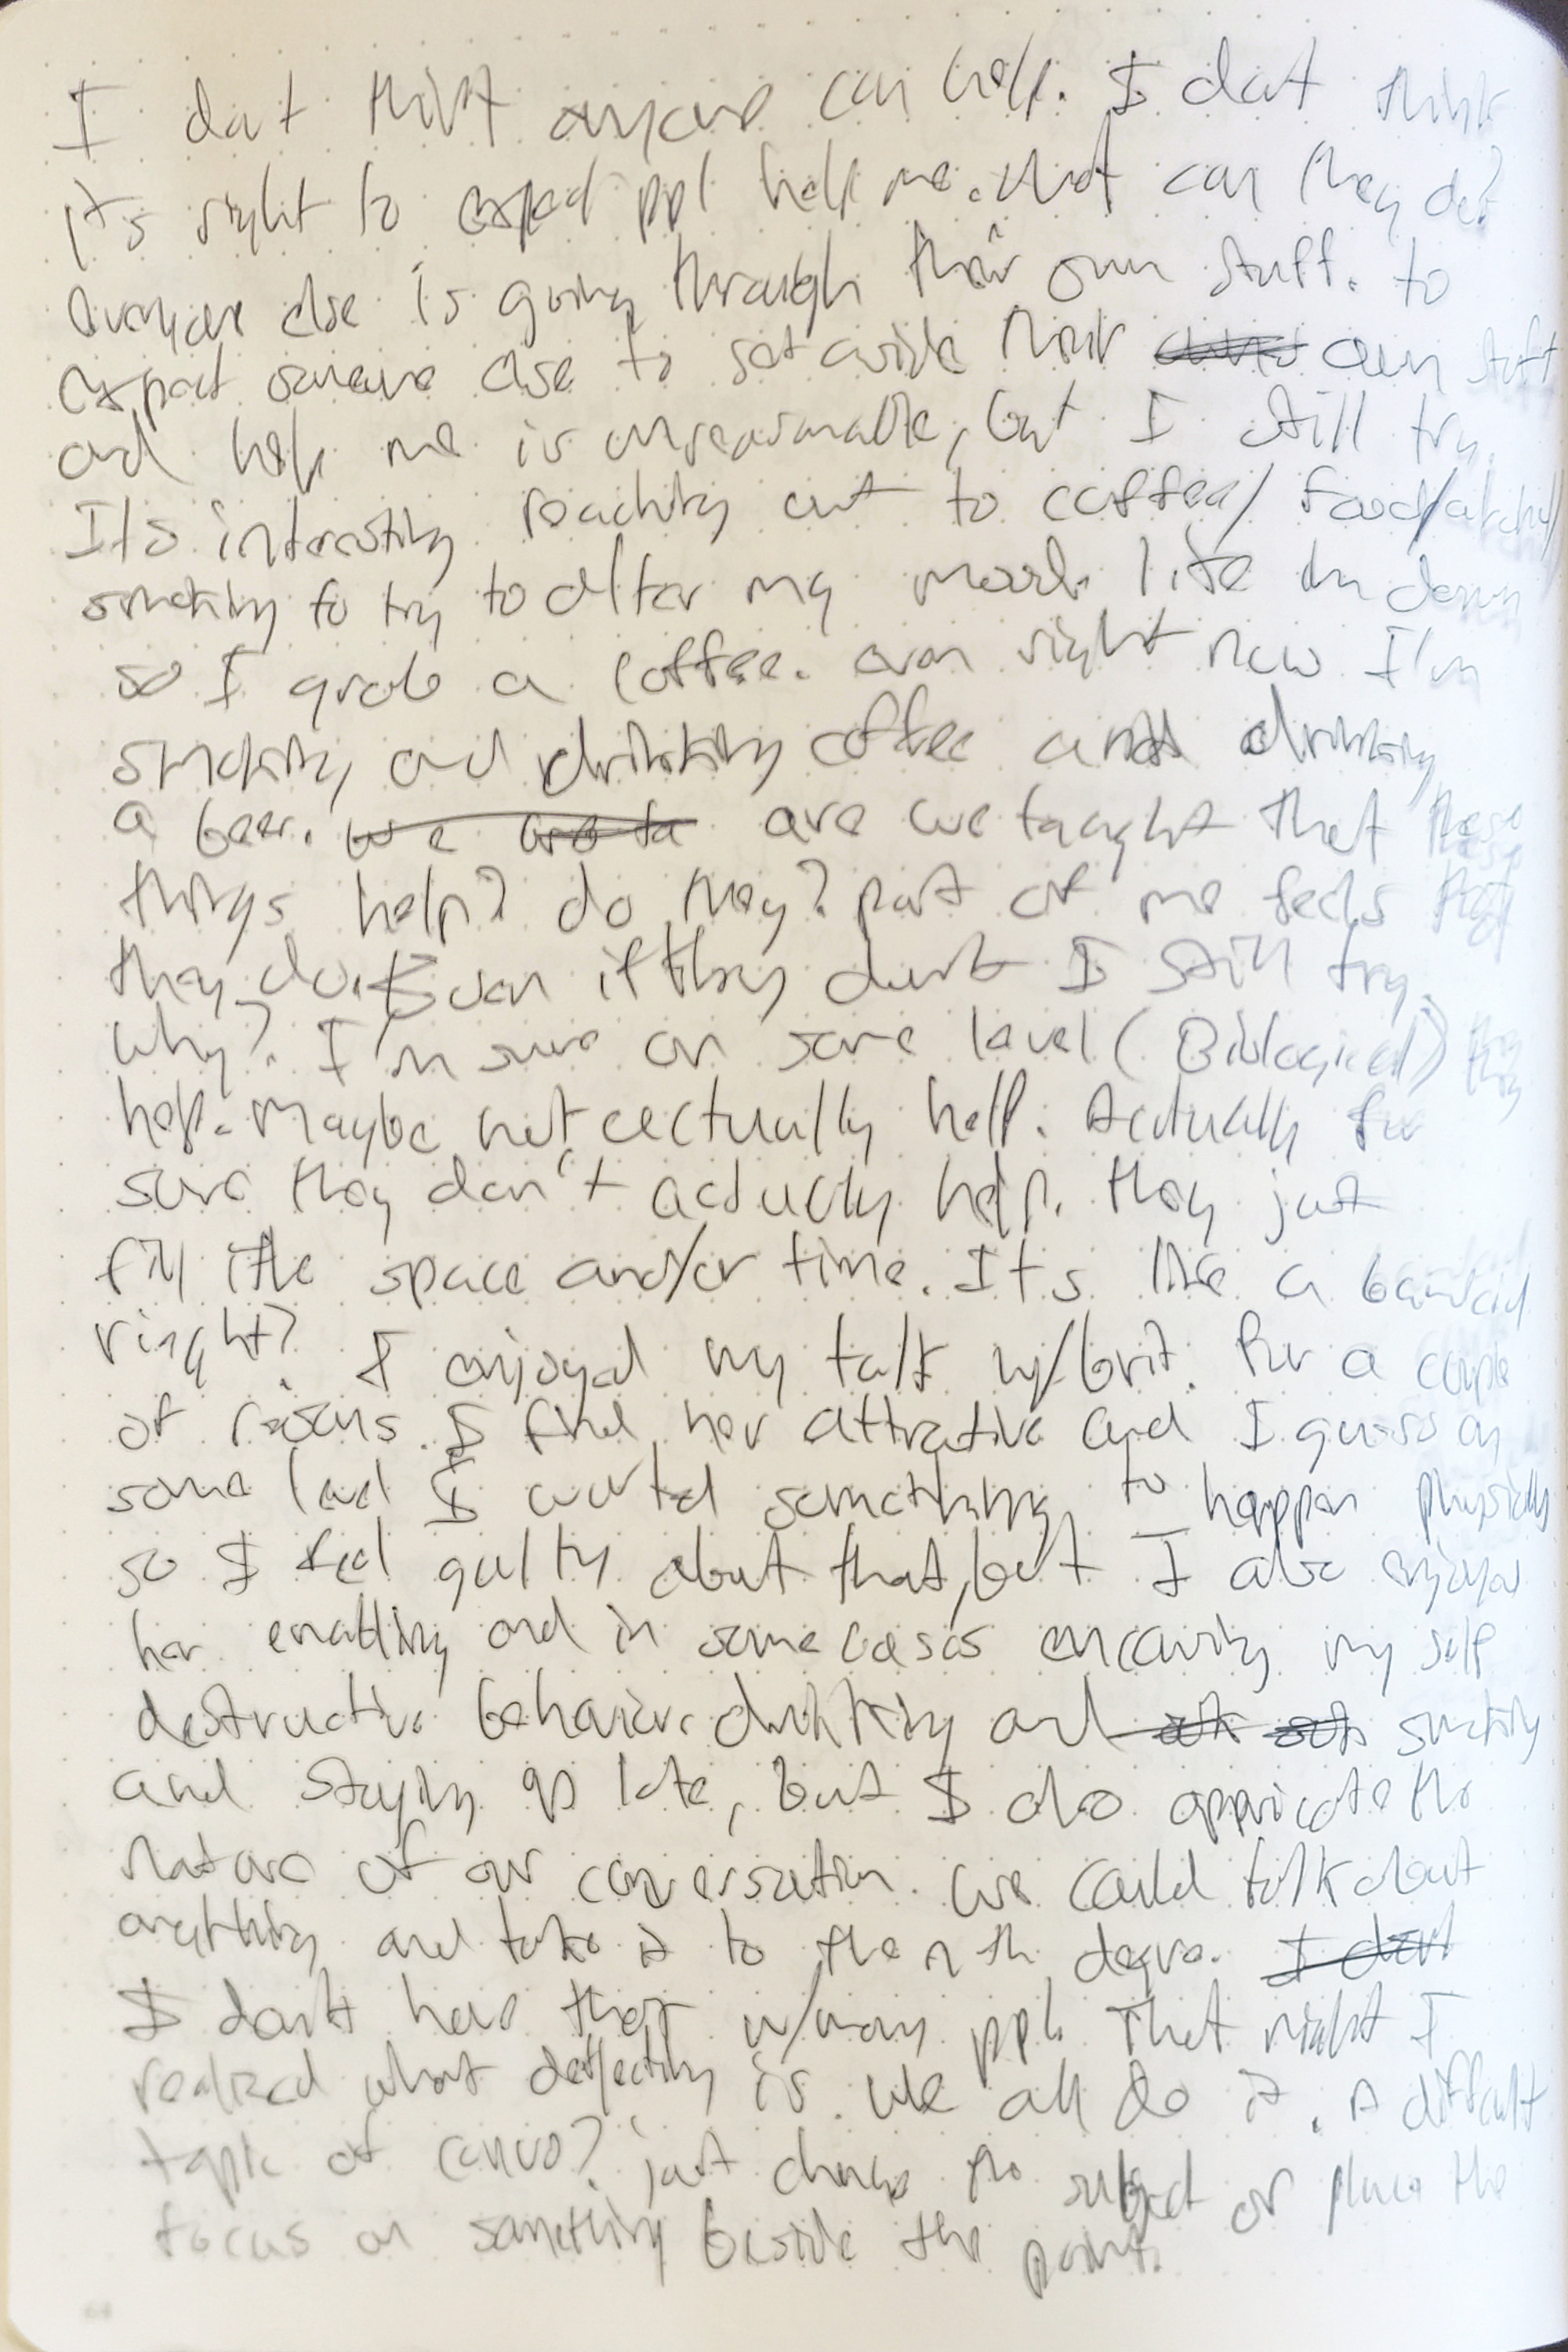 I dont think anyone can help. I dont think
it's right to expect ppl help me. what can they do?
everyone else is going through their own stuff. to
expect someone else to set aside their own stuff
and help me is unreasonable, but I still try.
It's interesting reaching out to coffee/food/alcohol/
something to try to alter my mood. like im down
so I grab a coffee. even right now I'm
smoking and drinking coffee and drinking
a beer. are we taught that these
things help? do they? part of me feels that
they do. Even if they dont I still try.
why? I'm sure on some level (Biological) they
help. Maybe not actually help. Actually for
sure they don't actually help. they just
fill the space and/or time. It's like a bandaid
ringht? I enjoyed my talk w/brit. For a couple
of reasons. I find her attractive and I guess on
some level I wanted something to happen physically
so I feel guilty about that, but I also enjoyed
her enabling and in some cases my self
destructive behavior. drinking and smoking
and staying up late, but I also appricate the
nature of our conversation. we could talk about
anything and take it to the nth degre. I dont
I dont have that w/many ppl. That night I
realized what deflecting is. We all do it. A difficult
topic of convo? just change the subject or place the
focus on something beside the point.